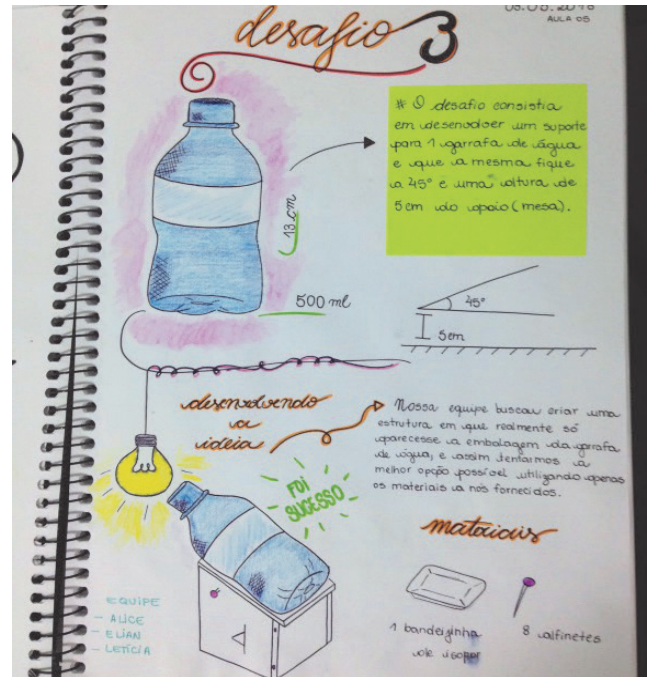 desafio 3
AULA 05
# O desafio consistia
em desenvolver um suporte
para 1 garrafa de água
e que a mesma fique
a 45° e uma altura de
5 cm do apoio (mesa).
13 cm
500 ml
45°
5cm
desenvolvendo
a
ideia
Nossa equipe buscou criar uma
estrutura em que realmente só
aparecesse a embalagem da garrafa
de água, e assim tentarmos a
melhor opção possível utilizando apenas
os materiais a nós fornecidos.
FOI
SUCESSO
materiais
1 bandeijinha
de isopor
8 alfinetes
EQUIPE
- ALICE
- ELIAN
- LETÍCIA